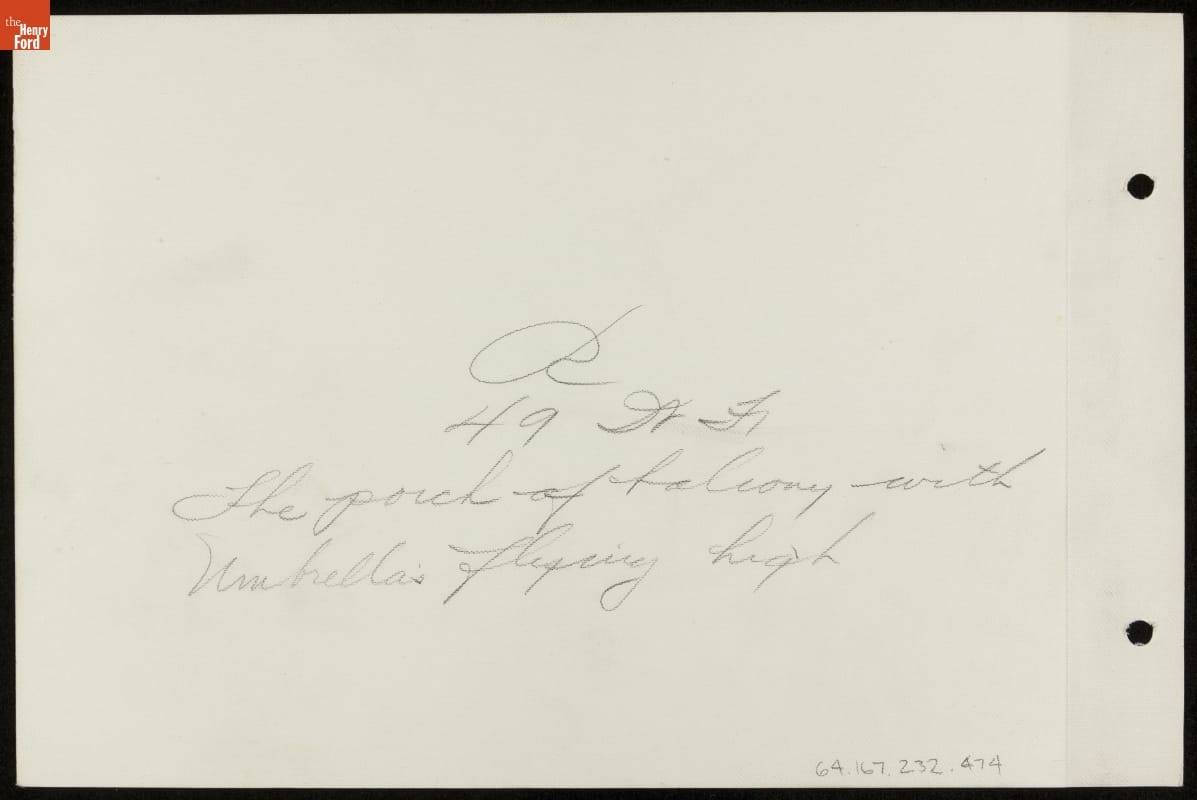 the
Henry
Ford
R
49 W Fr
The porch of balcony with
Umbrella's flying high
64.167.232.474